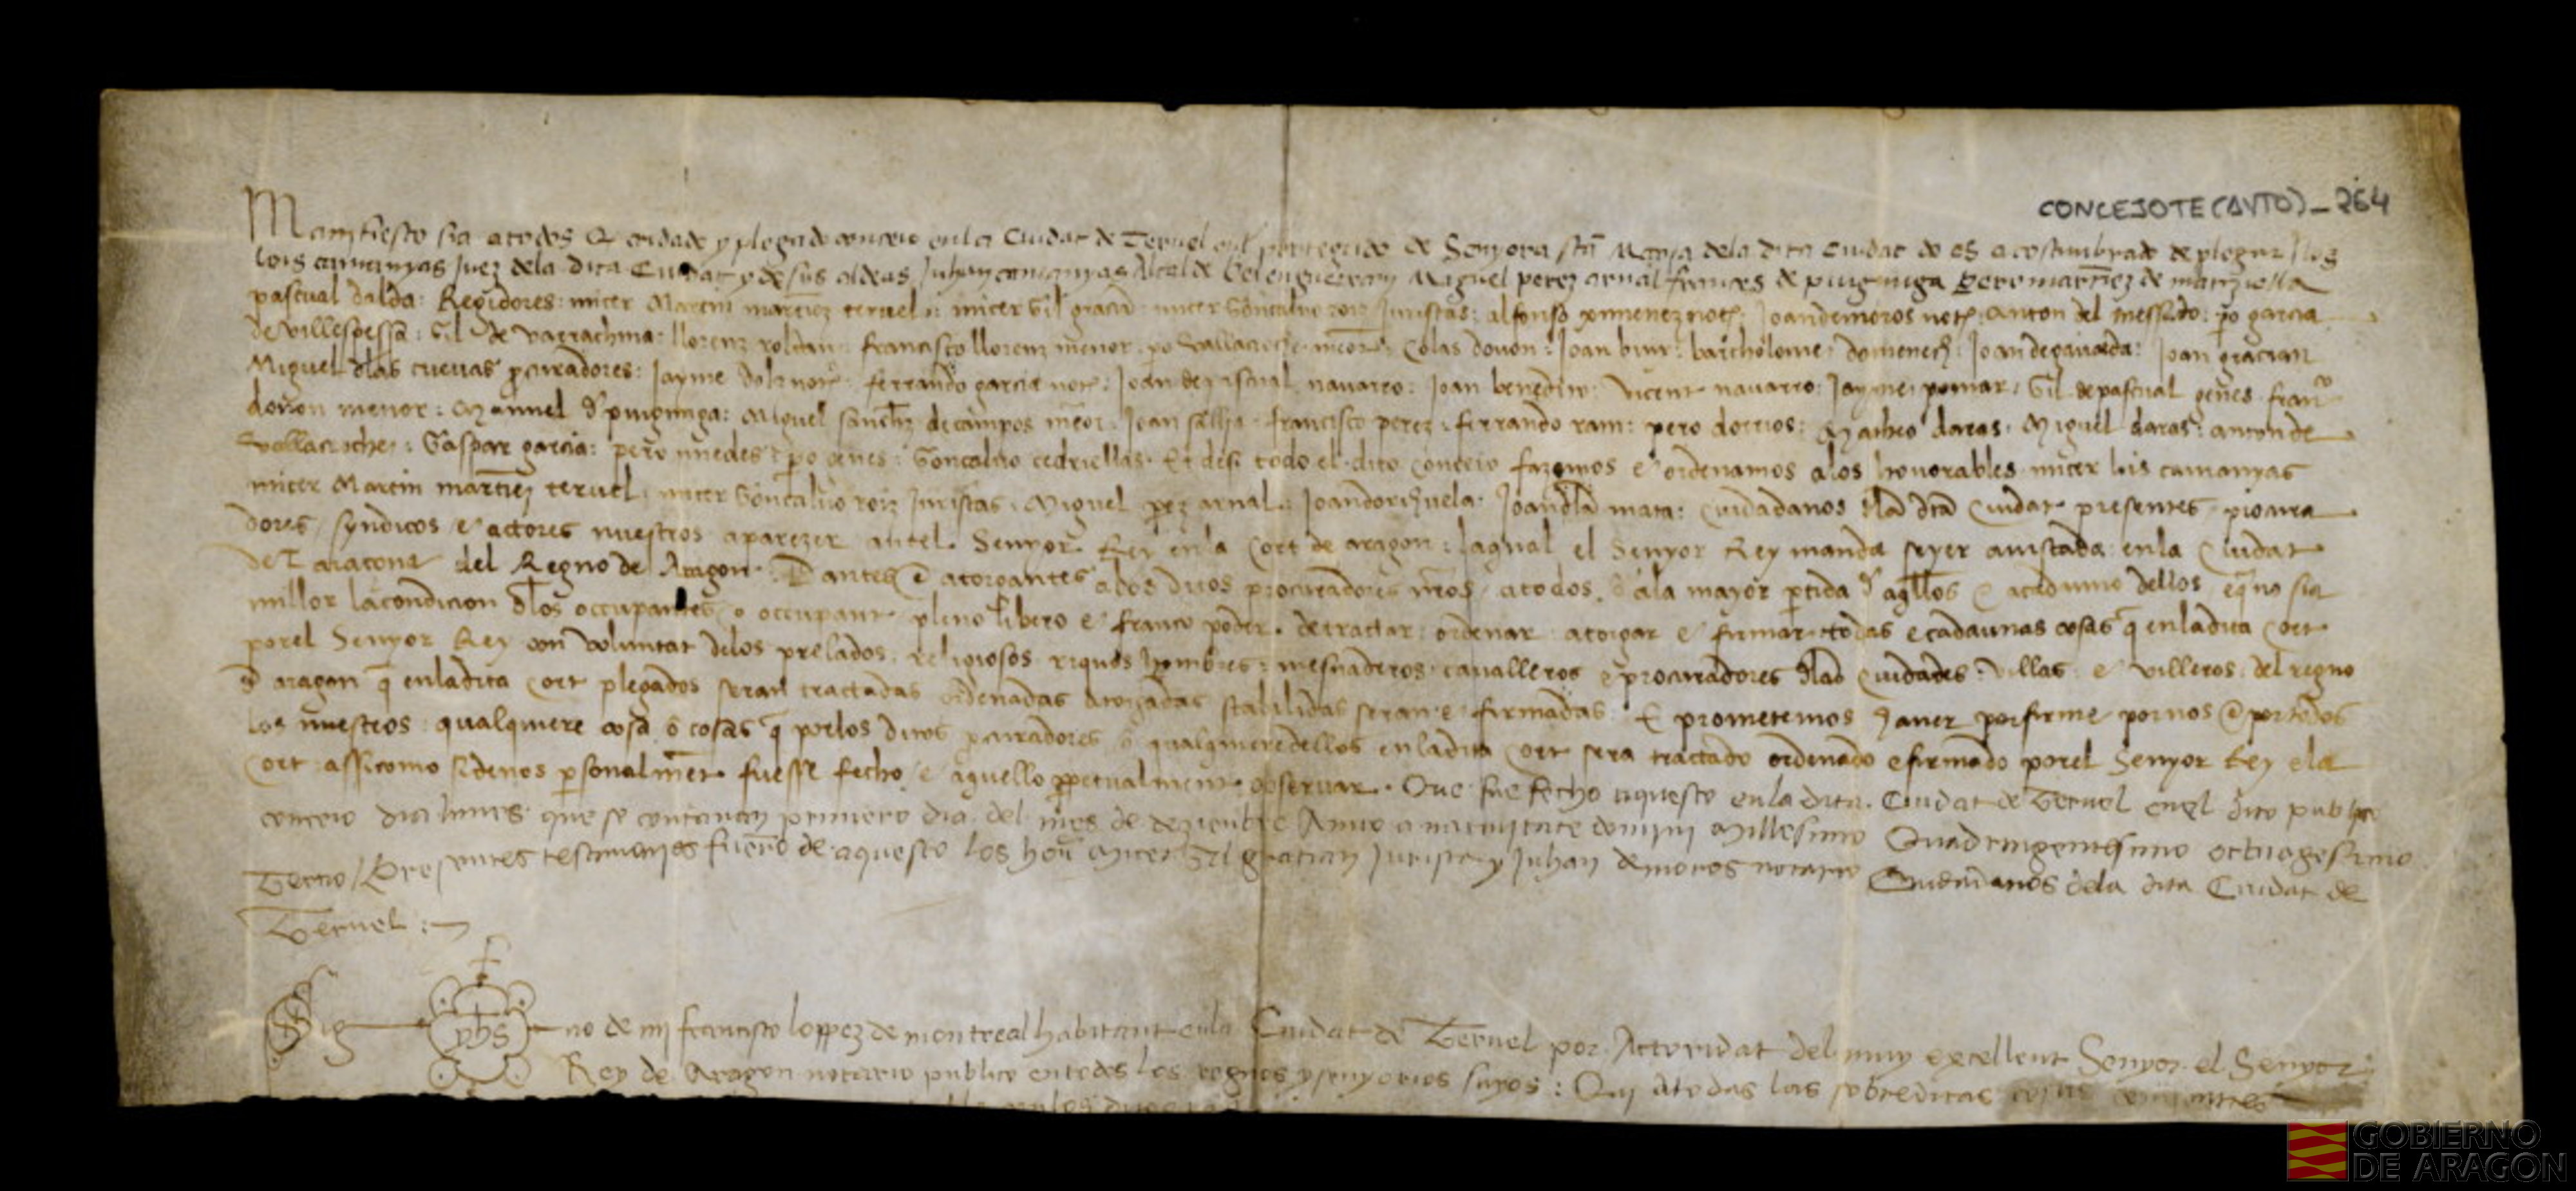 CONCEJOTE(AYTO)_264
Manifiesto sia a todos Q cridado y plegado conceio en la Ciudat de Teruel portegado de Senyora sta Maria dela dita Ciudat do es acostumbrado de plegar
lois camanyas Juez dela dita Ciudat y de sus aldeas Juhan camanyas Alcalde Miguel perez arnal frances de puigmiga Pero martinez de marziella
pascual dalda: Regidores: micer Martin martinez teruel: micer Gil gracia micer Goncalvo roiz Juristas: alfonso ximenez not: Joan de moros not: Anton del messado: po garcia
de villespessa: Gil de varrachina: llorenz roldan francisco llorenz menor po vallacroche menor: Colas dovon: Joan biur: bartholome domenech: Joan de gavarda: Joan gracian
Miguel dlas cuevas pcuradores: Jayme not: ferrando garcia not: Joan de pascual navarro: Joan benedito: vicent navarro: Jayme pomar: Gil de pascual genes fran
dovon menor: Manuel d puigmiga: Miguel sanchz de campos menor: Joan francisco perez: ferrando ram: pero dorrios: Matheo daras: Miguel daras: anton de
vallacroche: Gaspar garcia: pero po genes: Goncalvo cedriellas. Et desi todo el dito Conceio fazemos e ordenamos a los honorables micer lois camanyas
micer Martin martinez teruel: micer Goncalvo roiz Juristas: Miguel perez arnal: Joan dorihuela: Joan dla mata: Ciudadanos dla dta Ciudat presentes procura
dores, syndicos e actores nuestros aparezer antel Senyor Rey en la Cort de aragon: la qual el Senyor Rey manda seyer aiustada en la Ciudat
de Taracona del Regno de Aragon: Dantes e atorgantes a los ditos procuradores nros a todos e a la mayor ptida d aqllos e a cada uno dellos e q no sia
millor la condicion dlos occupantes o occupant pleno libero e franco poder de tractar: ordenar: atorgar e firmar todas e cadaunas cosas q en la dita Cort
por el Senyor Rey con voluntat delos prelados: religiosos riquos hombres: mesnaderos: cavalleros e procuradores dlas Ciudades: villas: e villeros del regno
d aragon q en la dita Cort plegados seran tractadas ordenadas atorgadas stabilidas seran e firmadas: E prometemos haver por firme por nos e por todos
los nuestros qualquiere cosa o cosas q por los ditos pcuradores o qualquiere dellos en la dita Cort sera tractado ordenado e firmado por el Senyor Rey e la
Cort assi como si de nos psonalment fuesse fecho e aquello ppetualment observar. Que fue fecho aquesto en la dita Ciudat de Teruel en el dito publico
conceio dia lunes que se contavan primero dia del mes de deziembre Anno a nativitate domini Millesimo Quadringentesimo octuagesimo
Tercio / Presentes testimonios fueron de aquesto los hon Micer Gil gracian Jurista y Juhan de moros notario Ciudadanos dela dita Ciudat de
Teruel:
Sig yhs no de mi francisco loppez de montreal habitant en la Ciudat de Teruel por Actoridat del muy excellent Senyor el Senyor
Rey de Aragon notario publico en todos los regnos y senyorios suyos: Qui a todas las sobreditas cosas
GOBIERNO
DE ARAGON